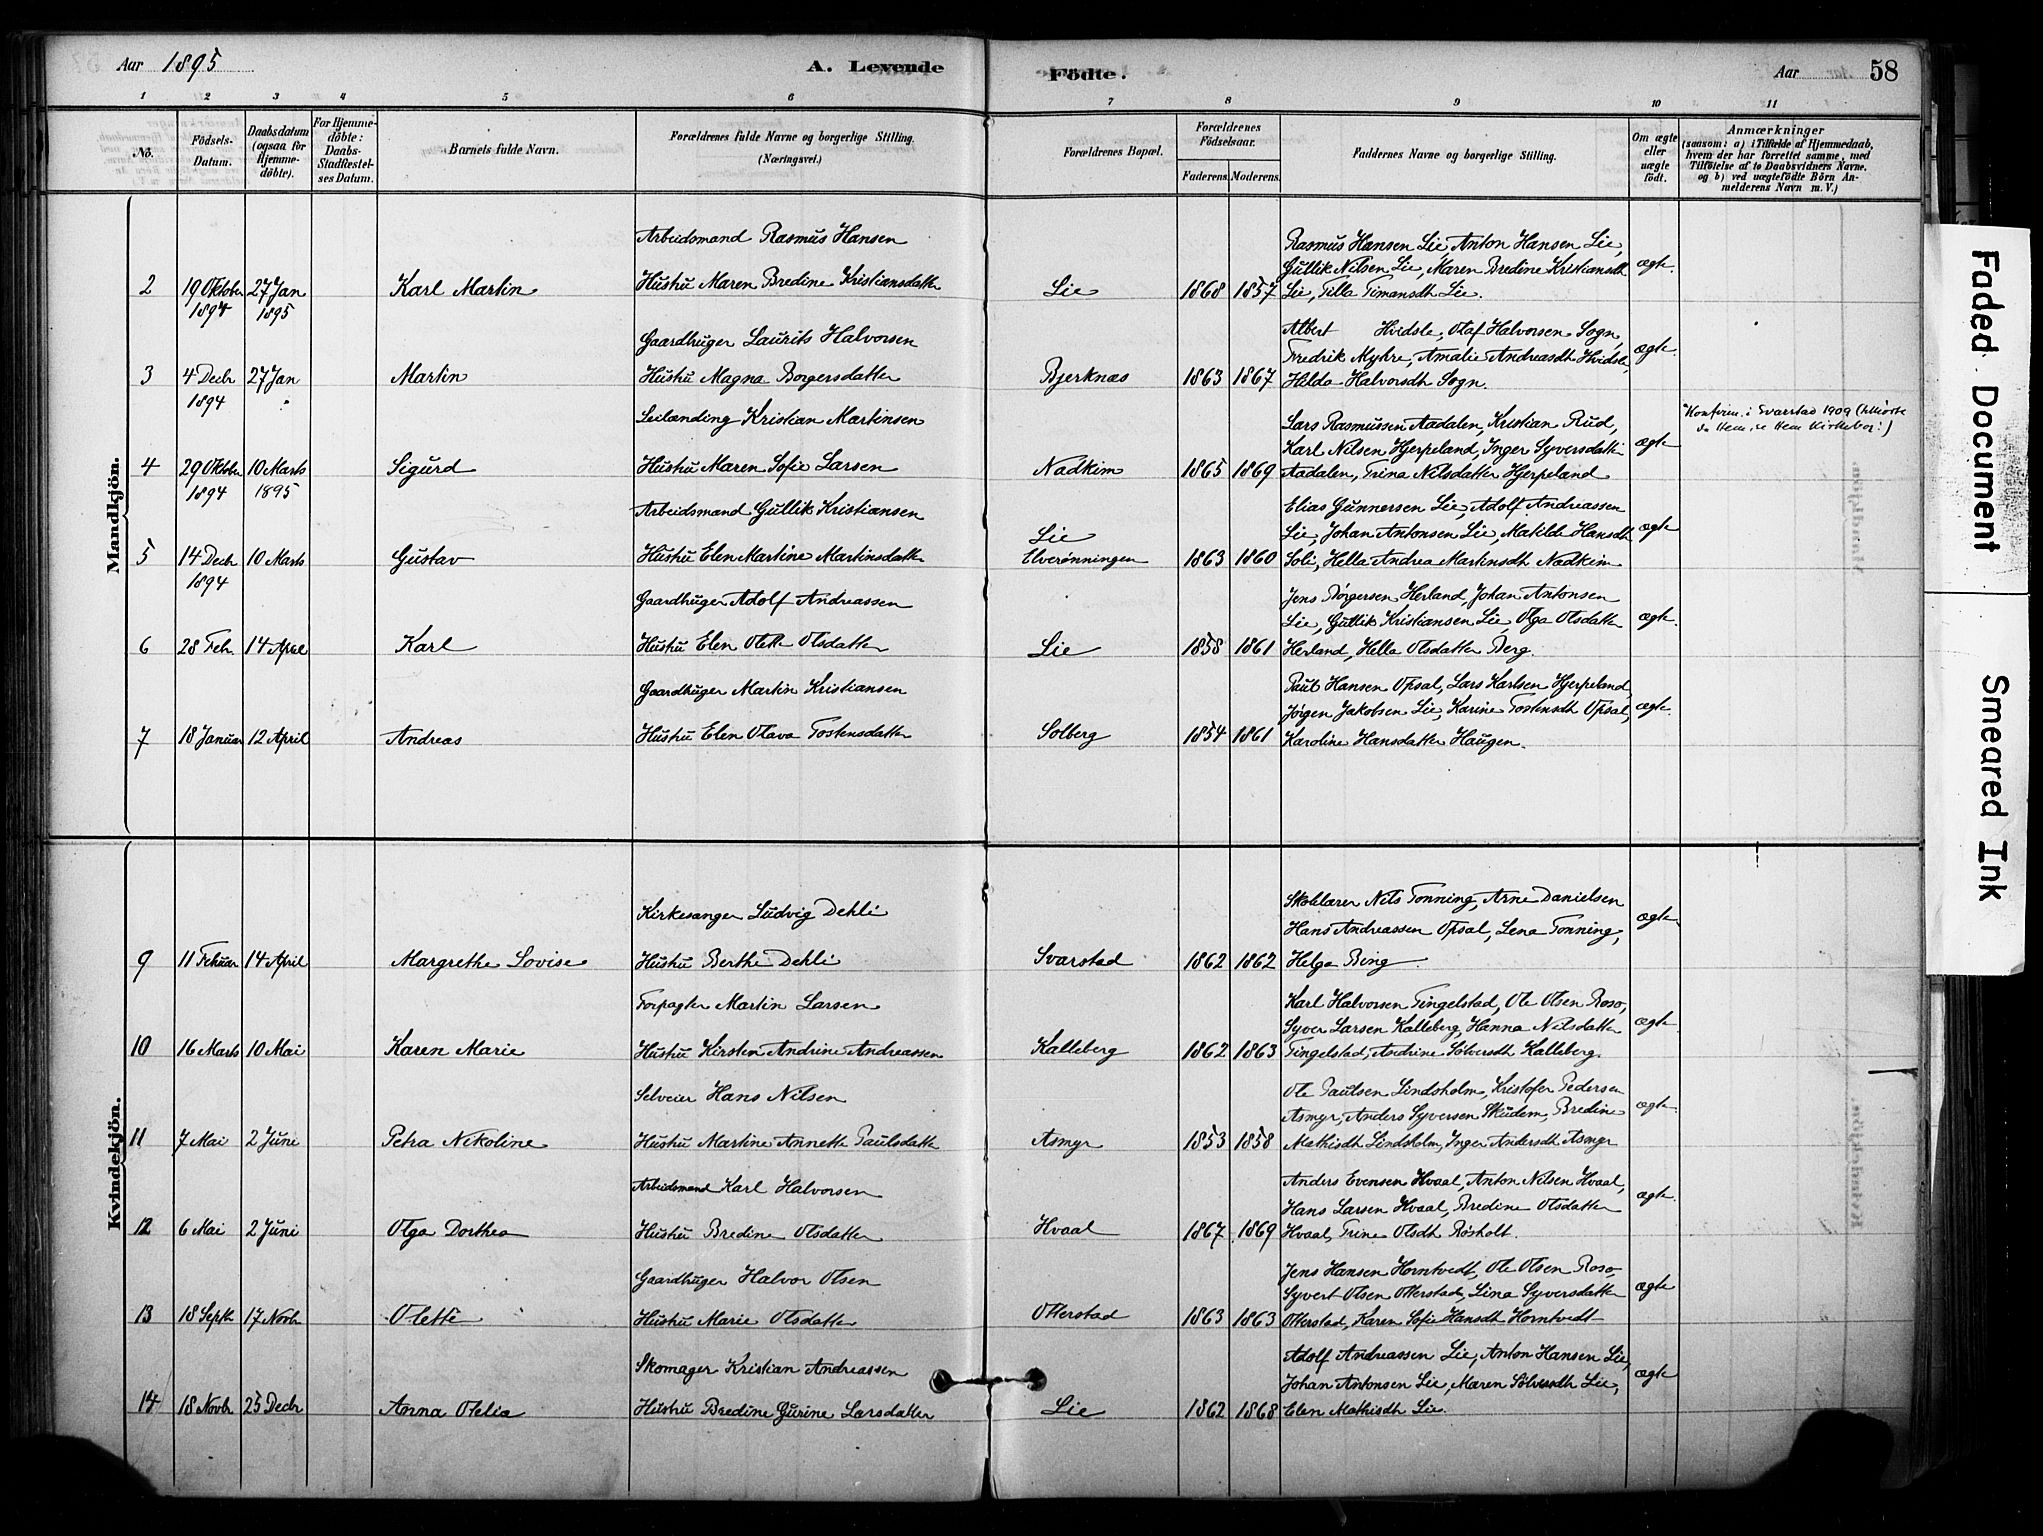 Aar 1895
A. Levende Födte.
Aar 58
1 2 3 4 5 6 7 8 9 10 11
No.
Födsels-Datum.
Daabsdatum (ogsaa for Hjemme-döbte).
For Hjemme-döbte: Daabs-Stadfæstel-ses Datum.
Barnets fulde Navn.
Forældrenes fulde Navne og borgerlige Stilling.
(Næringsvei.)
Forældrenes Bopæl.
Forældrenes Födselsaar.
Faderens. Moderens.
Faddernes Navne og borgerlige Stilling.
Om ægte eller uægte födt.
Anmærkninger
(saasom: a) i Tilfælde af Hjemmedaab, hvem der har forrettet samme, med Tilföielse af to Daabsvidners Navne. og b) ved uægtefödte Börn An-melderens Navn m. V.)
Mandkjön.
Arbeidsmand Rasmus Hansen
Rasmus Hansen Lie, Anton Hansen Lie,
Gullik Nilsen Lie, Maren Bredine Kristiansdt
ægte.
2 19 Oktober 27 Jan Karl Martin Hustru Maren Bredine Kristiansdatter Lie 1868 1857 Lie, Tilla Timansdt Lie.
1894 1895
Gaardbruger Laurits Halvorsen
Albert Hvidsle, Olaf Halvorsen Sogn,
Fredrik Myhre, Amalie Andreasdt Hvidsle,
ægte.
3 4 Decbr 27 Jan Martin Hustru Magna Borgersdatter Bjerknæs 1863 1867 Hilda Halvorsdt Sogn.
1894
Leilænding Kristian Martinsen
Lars Rasmussen Aadalen, Kristian Rud,
Karl Nilsen Hjerpeland, Inger Syversdatter
ægte
Konfirm. i Svarstad 1909
4 29 Oktober 10 Marts Sigurd Hustru Maren Sofie Larsen Nadkim 1865 1869 Aadalen, Trina Nilsdatter Hjerpeland
1894 1895
Arbeidsmand Gullik Kristiansen
Elias Gunnersen Lie, Adolf Andreassen
Lie, Johan Antonsen Lie, Matilde Hansdt
ægte
5 14 Decbr 10 Marts Gustav Hustru Elen Martine Martinsdatter Lie Elverønningen 1863 1860 Soli, Hella Andrea Martinsdt Nadkim
1894
Gaardbruger Adolf Andreassen
Jens Borgersen Herland, Johan Antonsen
Lie, Gullik Kristiansen Lie, Olga Olsdatter
ægte.
6 28 Febr. 14 April Karl Hustru Elen Olette Olsdatter Lie 1858 1861 Herland, Hella Olsdatter Berg.
Gaardbruger Martin Kristiansen
Paul Hansen Opsal, Lars Karlsen Hjerpeland,
Jørgen Jakobsen Lie, Karine Tostensdt Opsal,
ægte.
7 18 Januar 12 April Andreas Hustru Elen Olava Tostensdatter Solberg 1854 1861 Karoline Hansdatter Haugen.
Kvindekjön.
Kirkesanger Ludvig Dehli
Skolelærer Nils Tonning, Arne Danielsen
Hans Andreassen Opsal, Lena Tonning,
ægte.
9 11 Februar 14 April Margrethe Lovise Hustru Berthe Dehli Svarstad 1862 1862 Helga Bing.
Forpagter Martin Larsen
Karl Halvorsen Tingelstad, Ole Olsen Roso,
Syver Larsen Kalleberg, Hanna Nilsdatter
ægte.
10 16 Marts 10 Mai Karen Marie Hustru Kirsten Andrine Andreassen Kalleberg 1862 1863 Tingelstad, Andrine Sølversdt Kalleberg.
Selveier Hans Nilsen
Ole Paulsen Lindsholm, Kristofer Pedersen
Asmyr, Anders Syversen Skudem, Bredine
ægte.
11 7 Mai 2 Juni Petra Nikoline Hustru Martine Annette Paulsdatter Asmyr 1853 1858 Mathisdt Lindsholm, Inger Andersdt Asmyr
Arbeidsmand Karl Halvorsen
Anders Evensen Hvaal, Anton Nilsen Hvaal,
Hans Larsen Hvaal, Bredine Olsdatter
ægte.
12 6 Mai 2 Juni Olga Dorthea Hustru Bredine Olsdatter Hvaal 1867 1869 Hvaal, Trine Olsdt Røsholt.
Gaardbruger Halvor Olsen
Jens Hansen Horntvedt, Ole Olsen Roso,
Syvert Olsen Otterstad, Lina Syversdatter
ægte
13 18 Septr 17 Novbr Olette Hustru Marie Olsdatter Otterstad 1863 1863 Otterstad, Karen Sofie Hansdt Horntvedt
Skomager Kristian Andreassen
Adolf Andreassen Lie, Anton Hansen Lie,
Johan Antonsen Lie, Maren Sølversdt Lie,
ægte
14 18 Novbr 25 Decbr Anna Otelia Hustru Bredine Gurine Larsdatter Lie 1862 1868 Elen Mathisdt Lie.
Faded Document
Smeared Ink